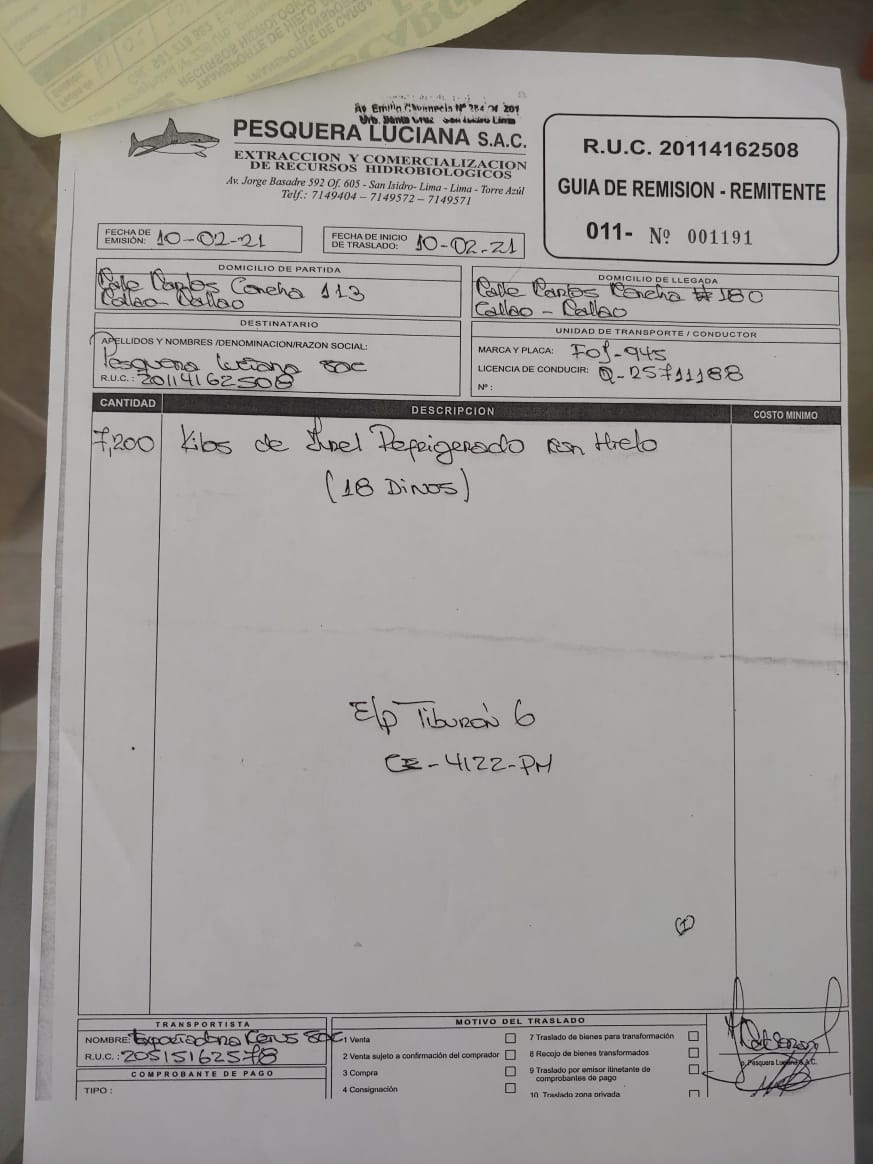 Av. Emilio Cavenecia Nº 264 Of. 201
Urb. Santa Cruz San Isidro Lima
PESQUERA LUCIANA S.A.C.
EXTRACCION Y COMERCIALIZACION
DE RECURSOS HIDROBIOLOGICOS
Av. Jorge Basadre 592 Of. 605 - San Isidro- Lima - Lima - Torre Azúl
Telf.: 7149404 – 7149572 – 7149571
R.U.C. 20114162508
GUIA DE REMISION - REMITENTE
011- Nº 001191
FECHA DE EMISIÓN: 10-02-21
FECHA DE INICIO DE TRASLADO: 10-02-21
DOMICILIO DE PARTIDA
Calle Carlos Concha 113
Callao - Callao
DOMICILIO DE LLEGADA
Calle Carlos Concha # 180
Callao - Callao
DESTINATARIO
APELLIDOS Y NOMBRES /DENOMINACION/RAZON SOCIAL:
Pesquera Luciana SAC
R.U.C.: 20114162508
UNIDAD DE TRANSPORTE / CONDUCTOR
MARCA Y PLACA: FOJ-945
LICENCIA DE CONDUCIR: Q-25711188
Nº :
CANTIDAD DESCRIPCION COSTO MINIMO
7,200 Kilos de Jurel Refrigerado con Hielo
(18 DINOS)
E/p Tiburón 6
CE-4122-PM
(1)
TRANSPORTISTA
NOMBRE: Exportadora Cetus SAC
R.U.C.: 20515162578
COMPROBANTE DE PAGO
TIPO :
MOTIVO DEL TRASLADO
1 Venta
2 Venta sujeto a confirmación del comprador
3 Compra
4 Consignación
7 Traslado de bienes para transformación
8 Recojo de bienes transformados
9 Traslado por emisor itinetante de
comprobantes de pago
10 Traslado zona privada
p. Pesquera Luciana S.A.C.